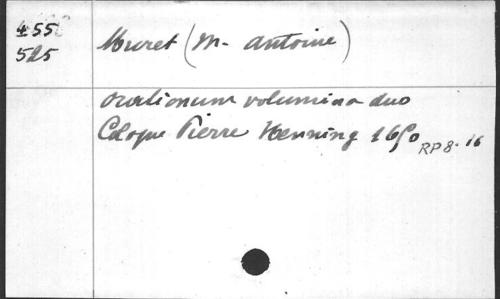 455
525
Muret (M. Antoine)
orationum volumina duo
Cologne Pierre Henning 1650
RP 8. 16